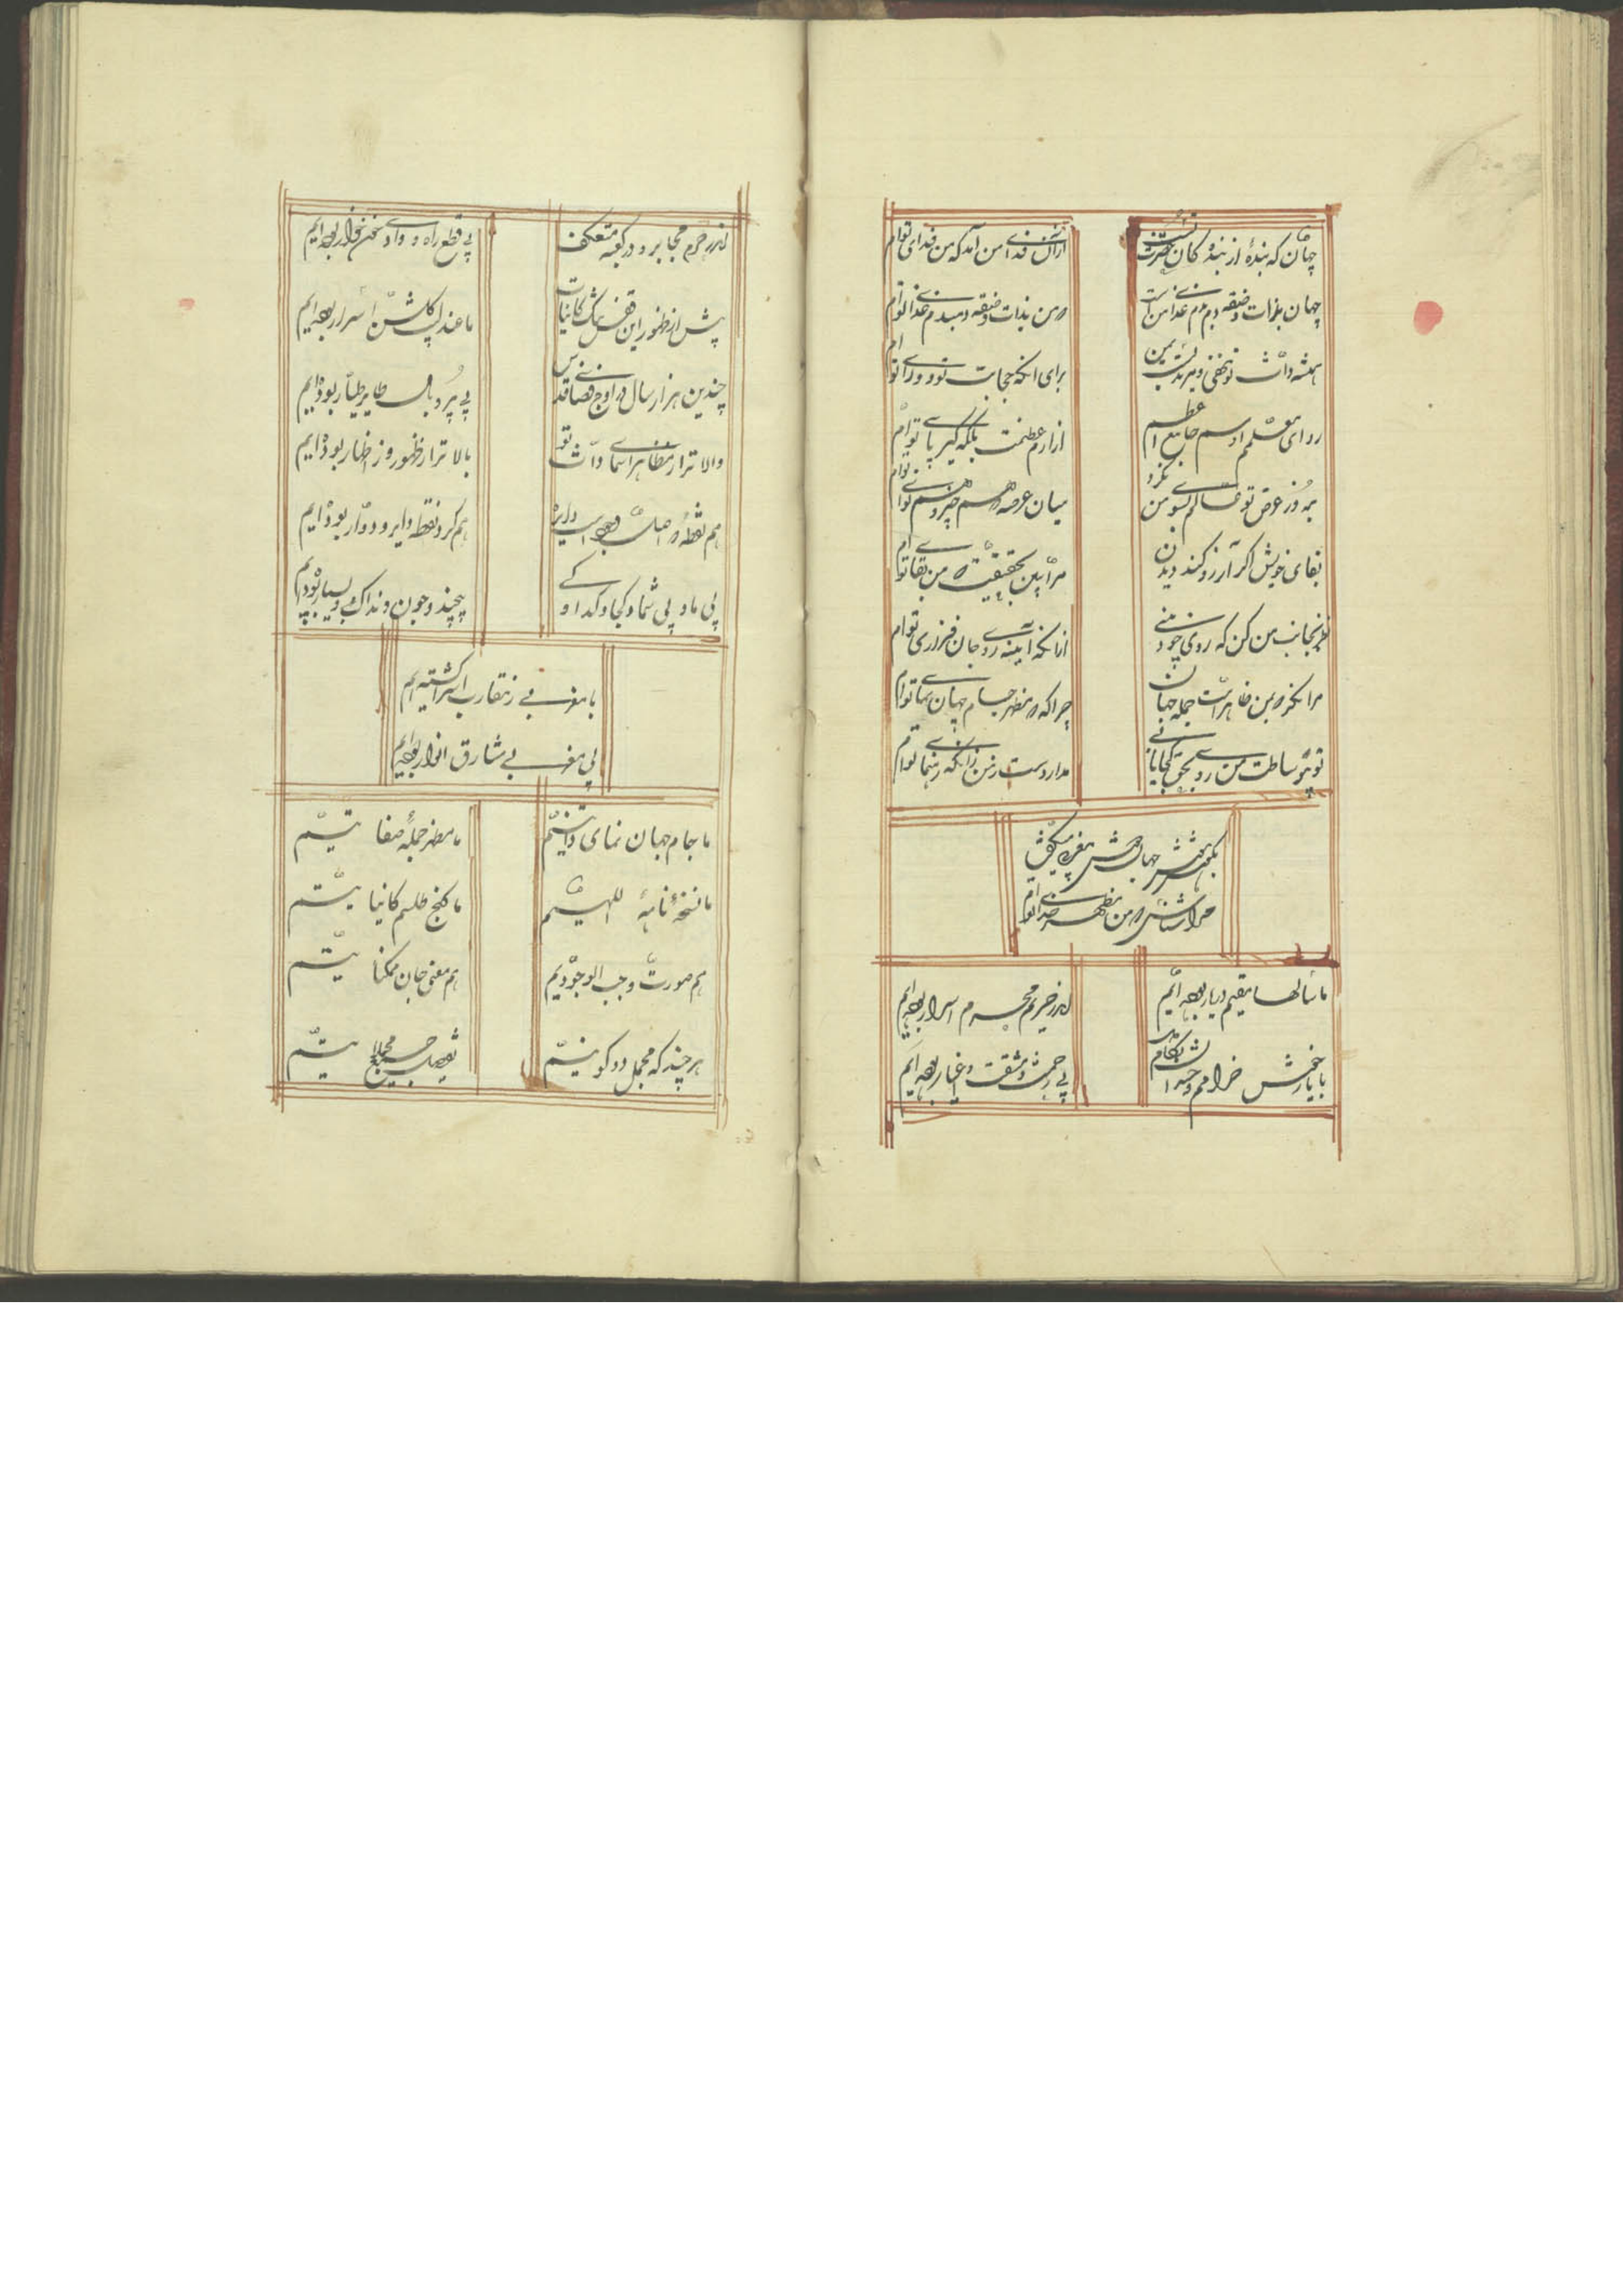 جهان که بندهٔ از بندگان حضرت تست
از آن فدای من آمد که من فدای توام
جهان بذات و صفت دم بدم غذای من است
و من بذات و صفت دمبدم غذای توام
همیشه ذات تو مخفی و مرتدیست بمن
برای آنکه حجابت نو و ردای توام
ردای معلم او اسم جامع اعظم
ازار عظمت بلکه کبریای توام
بروز عرض تو عالم بسوی من نکرد
میان عرصه
بقای خویش اگر آرزو کند دیدن
مرا ببین بحقیقت که من بقای توام
نظر بجانب من کن که روی خود بینی
از آنکه آینه روی جان فزای توام
مرا نگر که بمن ظاهر است جمله جهان
چرا که مظهر جام جهان نمای توام
تو بی وساطت من ره بحق کجا یابی
مدار دست ز من زانکه رهنمای توام
بگوش جهان مغربی میگفت
مرا شناس که من مظهر خدای توام
ما سالها مقیم در یار بوده‌ایم
اندر حریم محرم اسرار بوده‌ایم
با یار خوش خرام
بی زحمت و مشقت و اغیار بوده‌ایم
اندر حرم مجاور و در کعبه معتکف
بی قطع راه و وادی خونخوار بوده‌ایم
پیش از ظهور این قفس تنگ کاینات
ما عندلیب گلشن اسرار بوده‌ایم
چندین هزار سال در اوج فضای قدس
بی پر و بال طایر طیار بوده‌ایم
والاتر از مظاهر اسمای ذات تو
بالاتر از ظهور و ز اظهار بوده‌ایم
هم نقطه
هم گرد نقطه دایر و دوار بوده‌ایم
بی ما و بی شما و کجا و کدام و کی
بیچند و چون و اندک و بسیار بوده‌ایم
با مغربی
بی مغربی مشارق انوار بوده‌ایم
ما جام جهان نمای ذاتیم
ما مظهر جملهٔ صفاتیم
ما نسخهٔ نامهٔ اللهیم
ما گنج طلسم کایناتیم
هم صورت واجب الوجودیم
هم معنی جان ممکناتیم
هر چند که مجمل دو کونیم
تفصیل جمیع مجملاتیم